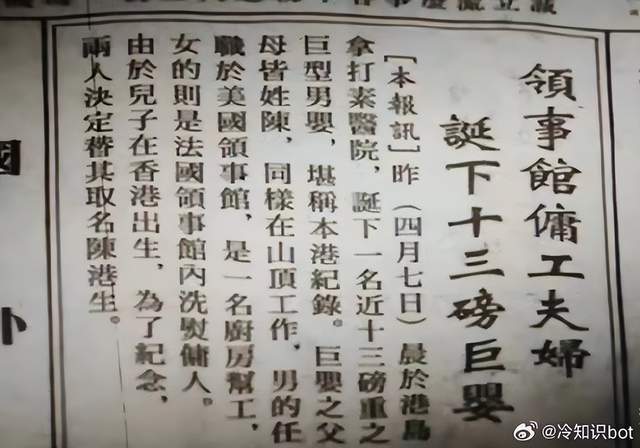 領事館傭工夫婦
誕下十三磅巨嬰
［本報訊］昨（四月七日）晨於港島
拿打素醫院，誕下一名近十三磅重之
巨型男嬰，堪稱本港紀錄。巨嬰之父
母皆姓陳，同樣在山頂工作，男的任
職於美國領事館，是一名廚房幫工，
女的則是法國領事館內洗熨傭人。
由於兒子在香港出生，為了紀念，
兩人決定替其取名陳港生。
國
卟
@冷知识bot